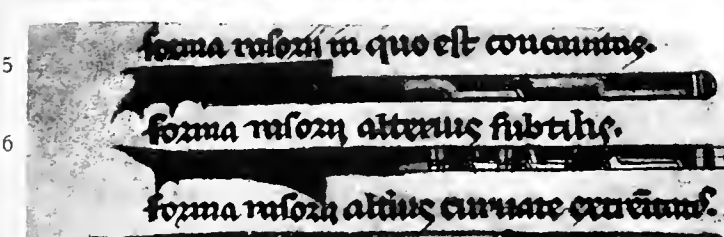 forma rasorii in quo est concauitas.
5
forma rasorii alterius subtilis.
6
forma rasorii alterius curuate extremitatis.